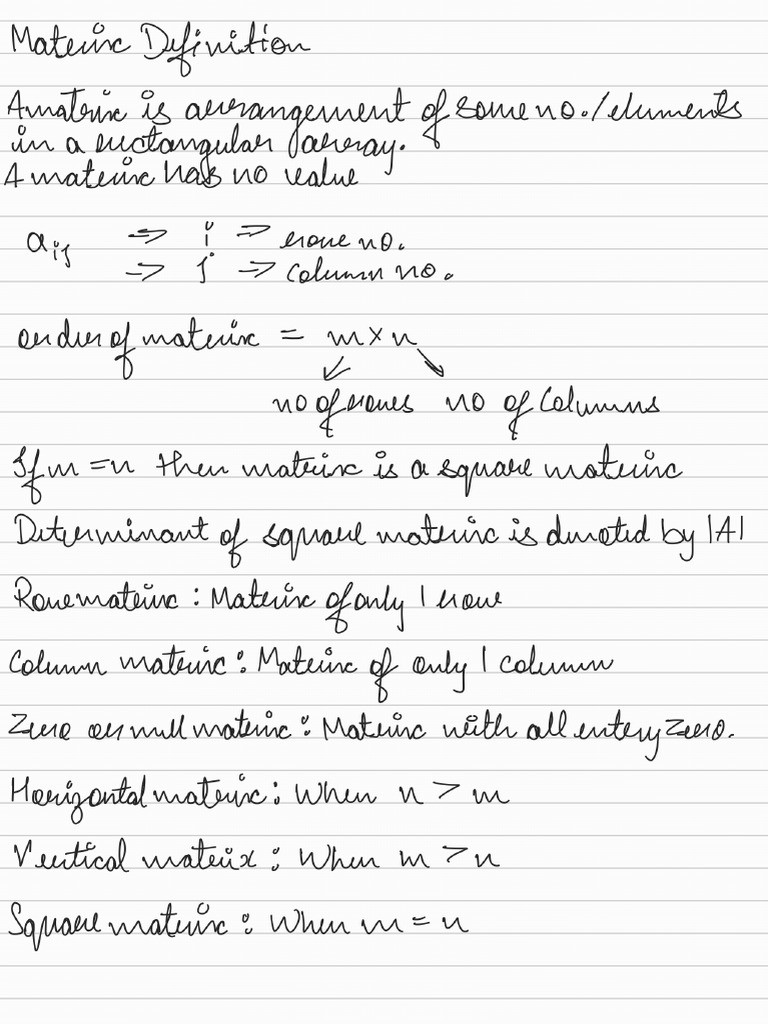 Matrix Definition
A matrix is arrangement of some no./elements
in a rectangular array.
A matrix has no value
aij ⇒ i ⇒ row no.
⇒ j ⇒ Column no.
order of matrix = m × n
↙ ↘
no of rows no of Columns
If m = n then matrix is a square matrix
Determinant of square matrix is denoted by |A|
Row matrix : Matrix of only 1 row
Column matrix : Matrix of only 1 column
Zero or null matrix : Matrix with all entry zero.
Horizontal matrix : When n > m
Vertical matrix : When m > n
Square matrix : When m = n